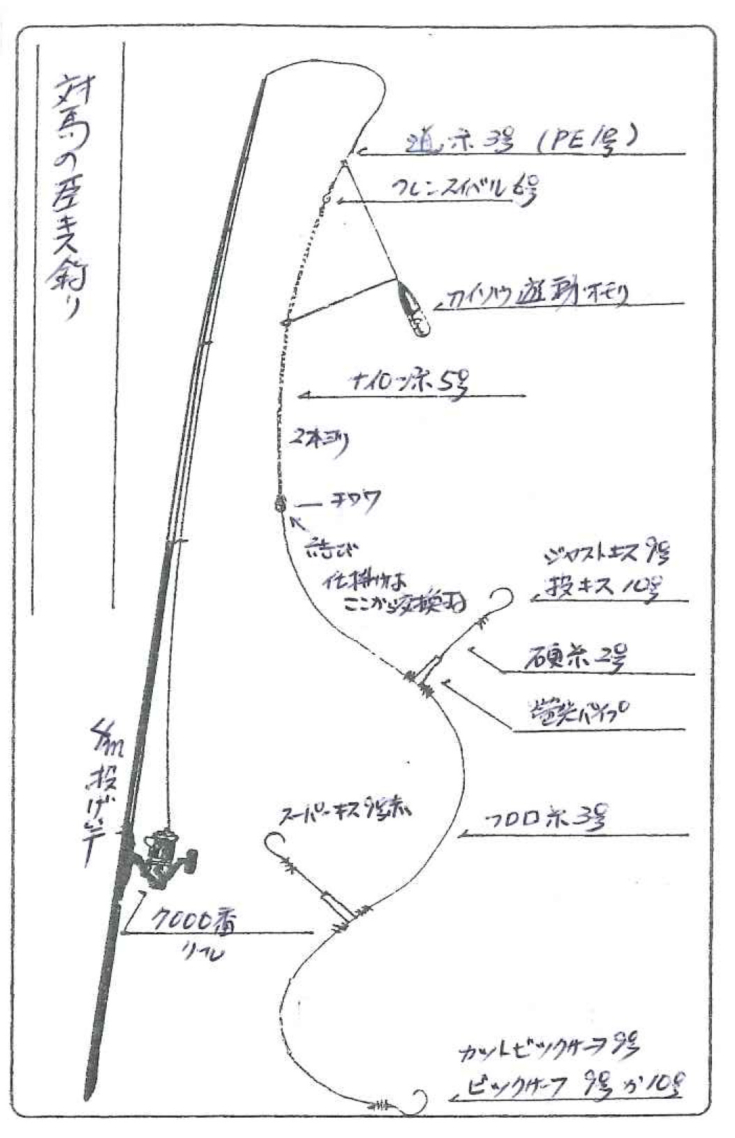 対馬の巨キス釣り
道糸3号 (PE1号)
フレンスイベル6号
カイソウ遊動オモリ
ナイロン糸5号
2本ヨリ
チワワ
結び
仕掛けは
ここから交換する
ジャストキス9号
投キス10号
硬糸2号
蛍光パイプ
スーパーキス9号赤
フロロ糸3号
4m投げ竿
7000番
リール
カットビックサーフ9号
ビックサーフ 9号か10号